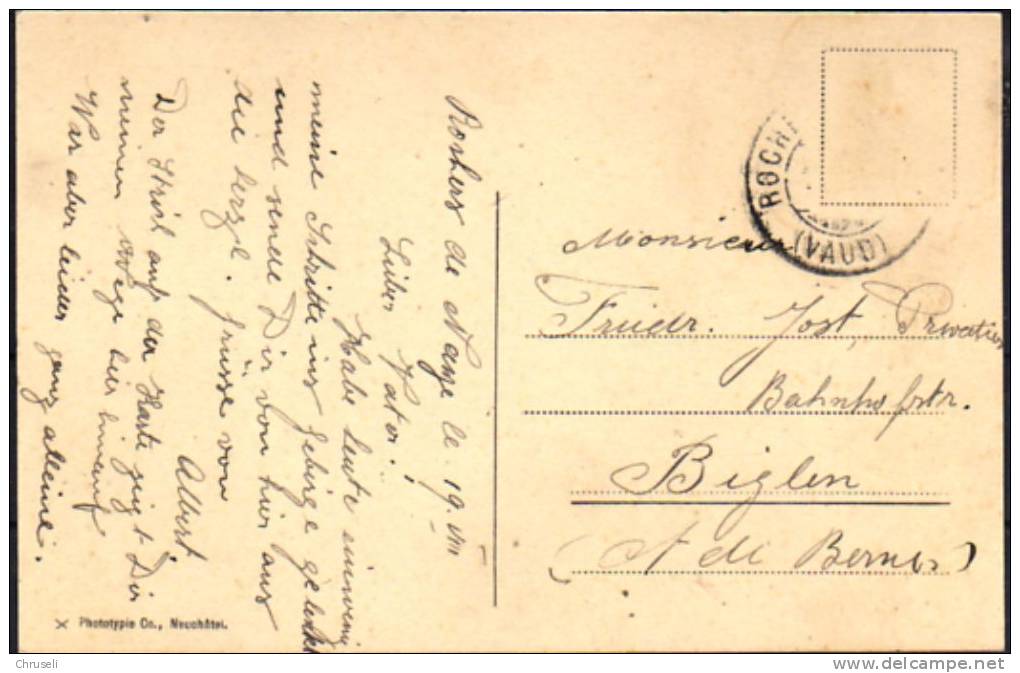 Rochers de Naye le 19. VIII
Lieber Vater!
Habe heute einwenig
meine Schritte ins Gebirge gelenkt
und sende Dir von hier aus
die herzl. Grüsse von
Albert.
Der Strich auf der Karte zeigt Dir
meinen Weg hier hinauf
War aber leider ganz alleine.
X Phototypie Co., Neuchâtel.
ROCH
(VAUD)
Monsieur
Friedr. Jost, Privatier
Bahnhofstr.
Biglen
(Ct de Berne)
Chruseli
delcampe.net